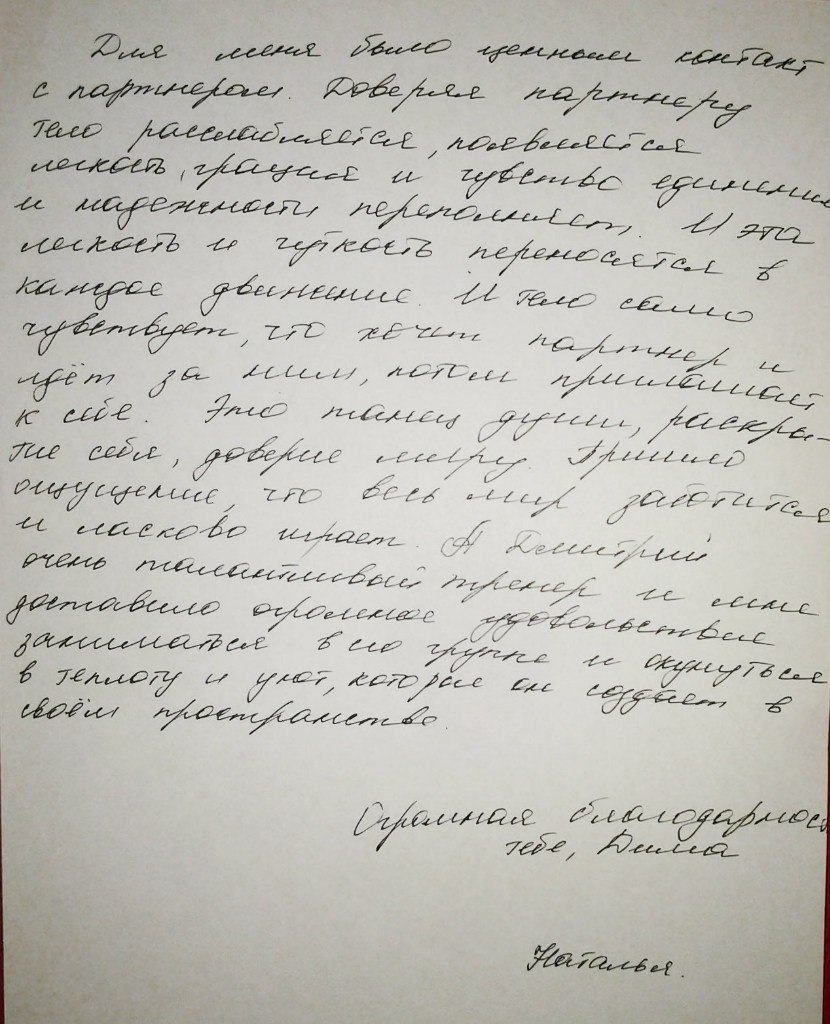 Для меня было ценным контакт
с партнером. Доверяя партнеру
тело расслабляется, появляется
легкость, грация и чувство единения
и надежности переполняет. И эта
легкость и чуткость переносятся в
каждое движение. И тело само
чувствует, что хочет партнер и
идёт за ним, потом приглашает
к себе. Это танец души, раскры-
тие себя, доверие миру. Пришло
ощущение, что весь мир заботится
и ласково играет. А Дмитрий
очень талантливый тренер и мне
доставило огромное удовольствие
заниматься в его группе и окунуться
в теплоту и уют, которые он создает в
своём пространстве.
Огромная благодарность
тебе, Дима
Наталья.